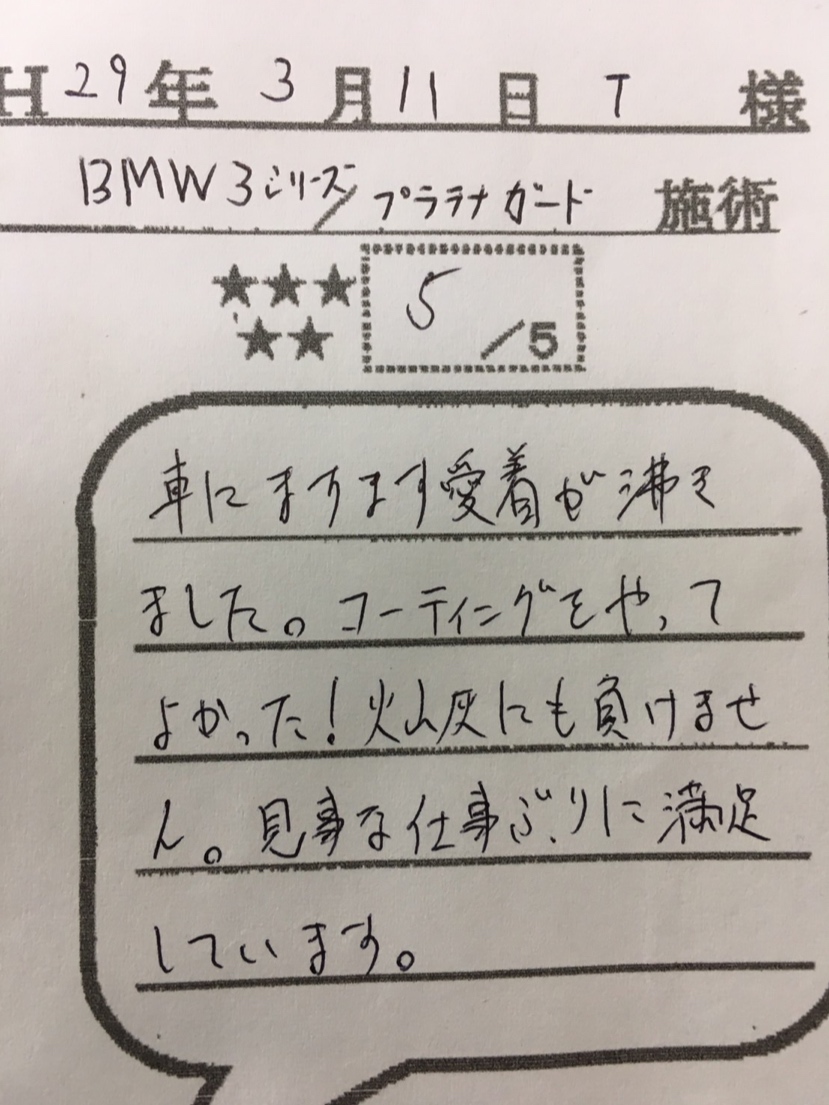 H29年3月11日 T 様
BMW3シリーズ/プラチナガード 施術
★★★ 5/5
★★
車にますます愛着が沸き
ました。コーティングをやって
よかった!火山灰にも負けませ
ん。見事な仕事ぶりに満足
しています。